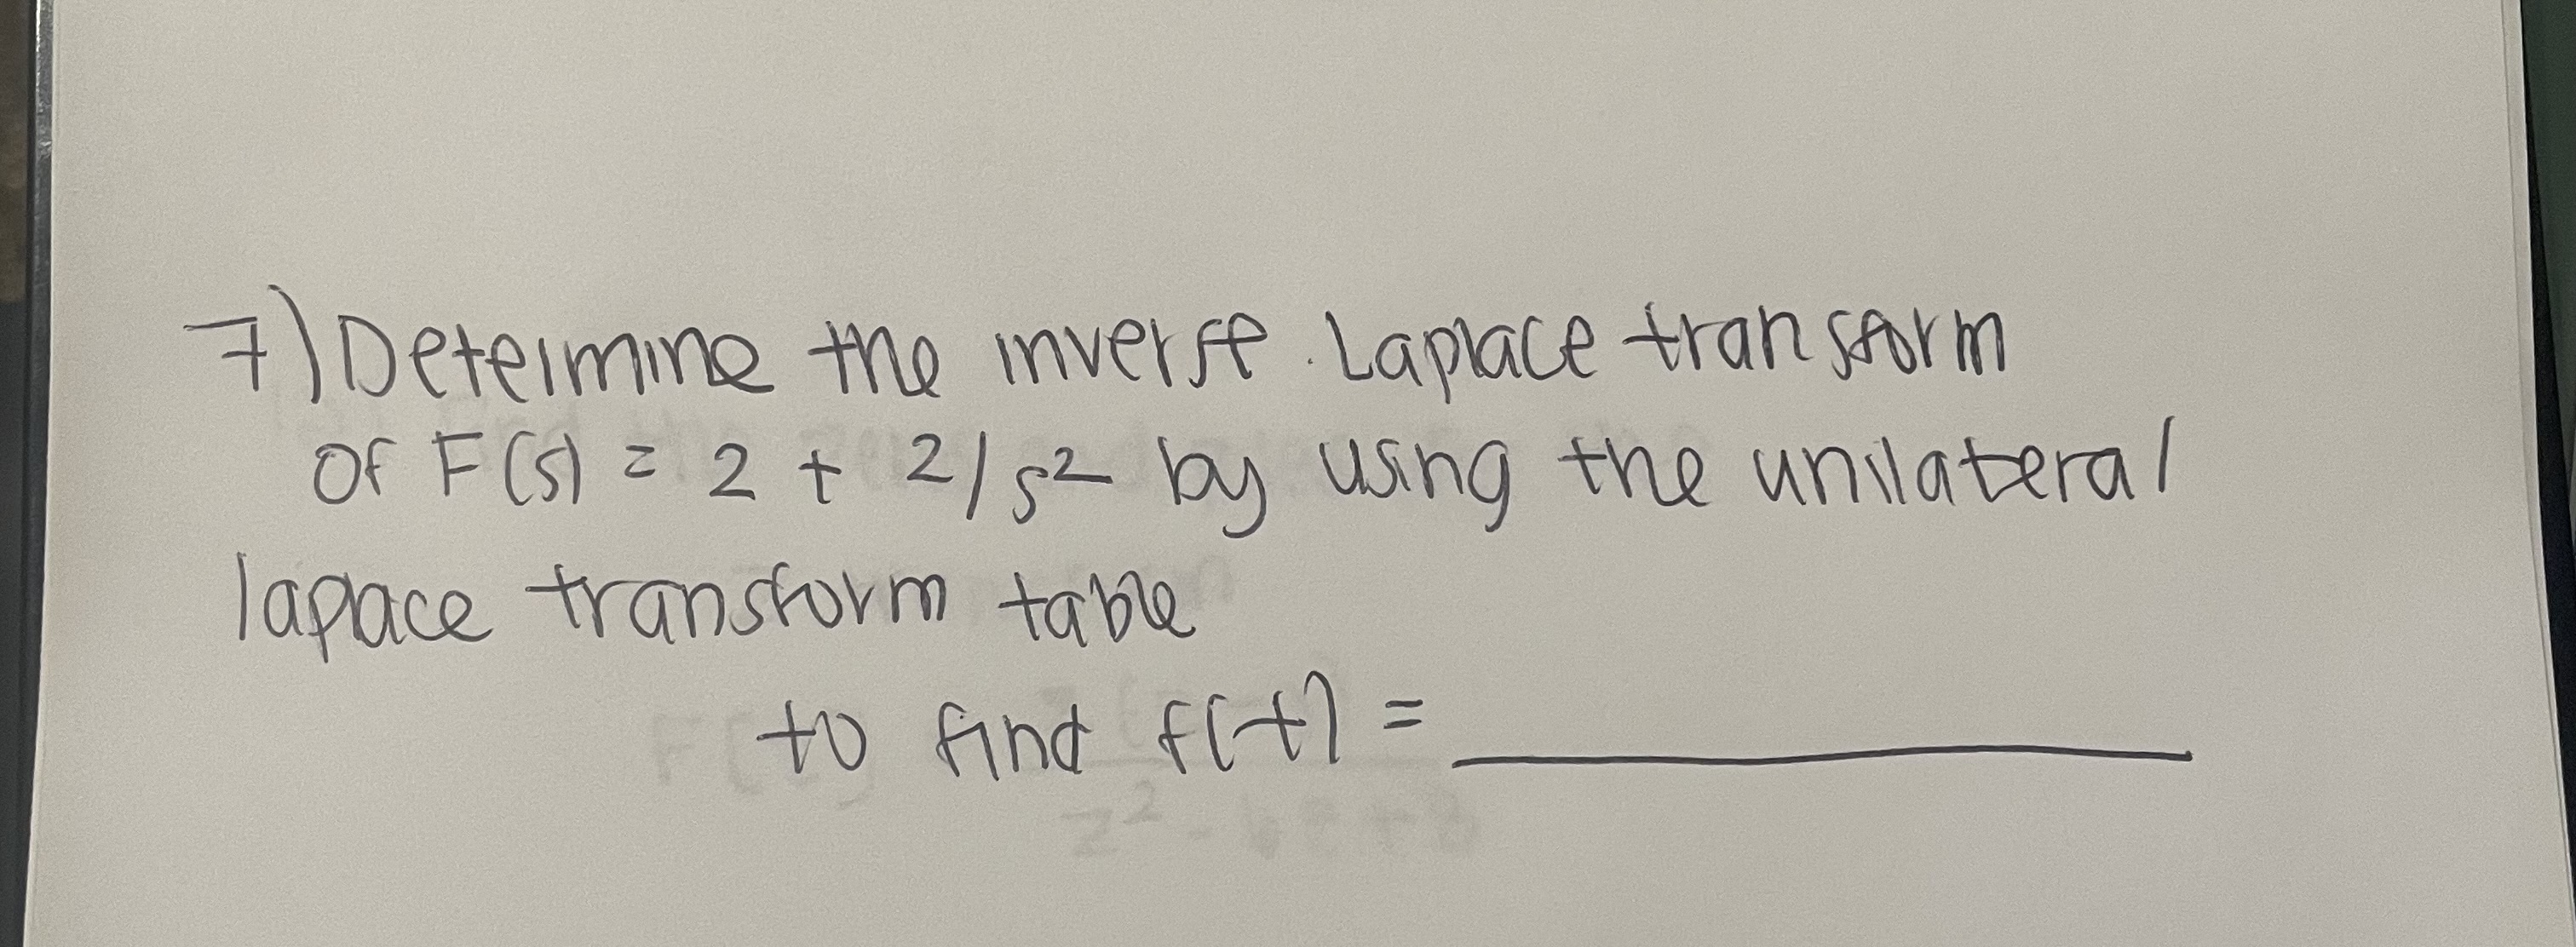 7) Determine the inverse Laplace transform
of F(s) = 2 + 2/s² by using the unilateral
laplace transform table
to find f(t) = ____________